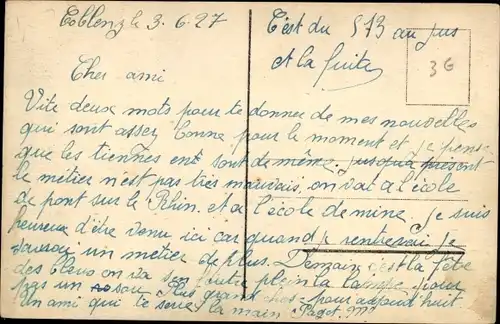 Coblenz le 3.6.27
C'est du 573 au jus
et la fuite
3G
Cher ami
Vite deux mots pour te donner de mes nouvelles
qui sont assez bonne pour le moment et je pense
que les tiennes en sont de même. jusqu'à présent
le métier n'est pas très mauvais, on va a l'école
de pont sur le Rhin. et a l'école de mine. Je suis
heureux d'être venu ici car quand je rentrerai je
saurai un métier de plus. Demain c'est la fête
des bleus on va s'en foutre plein la lampe pour
pas un sou. Plus grand chose pour aujourd'huit
Un ami qui te serre la main